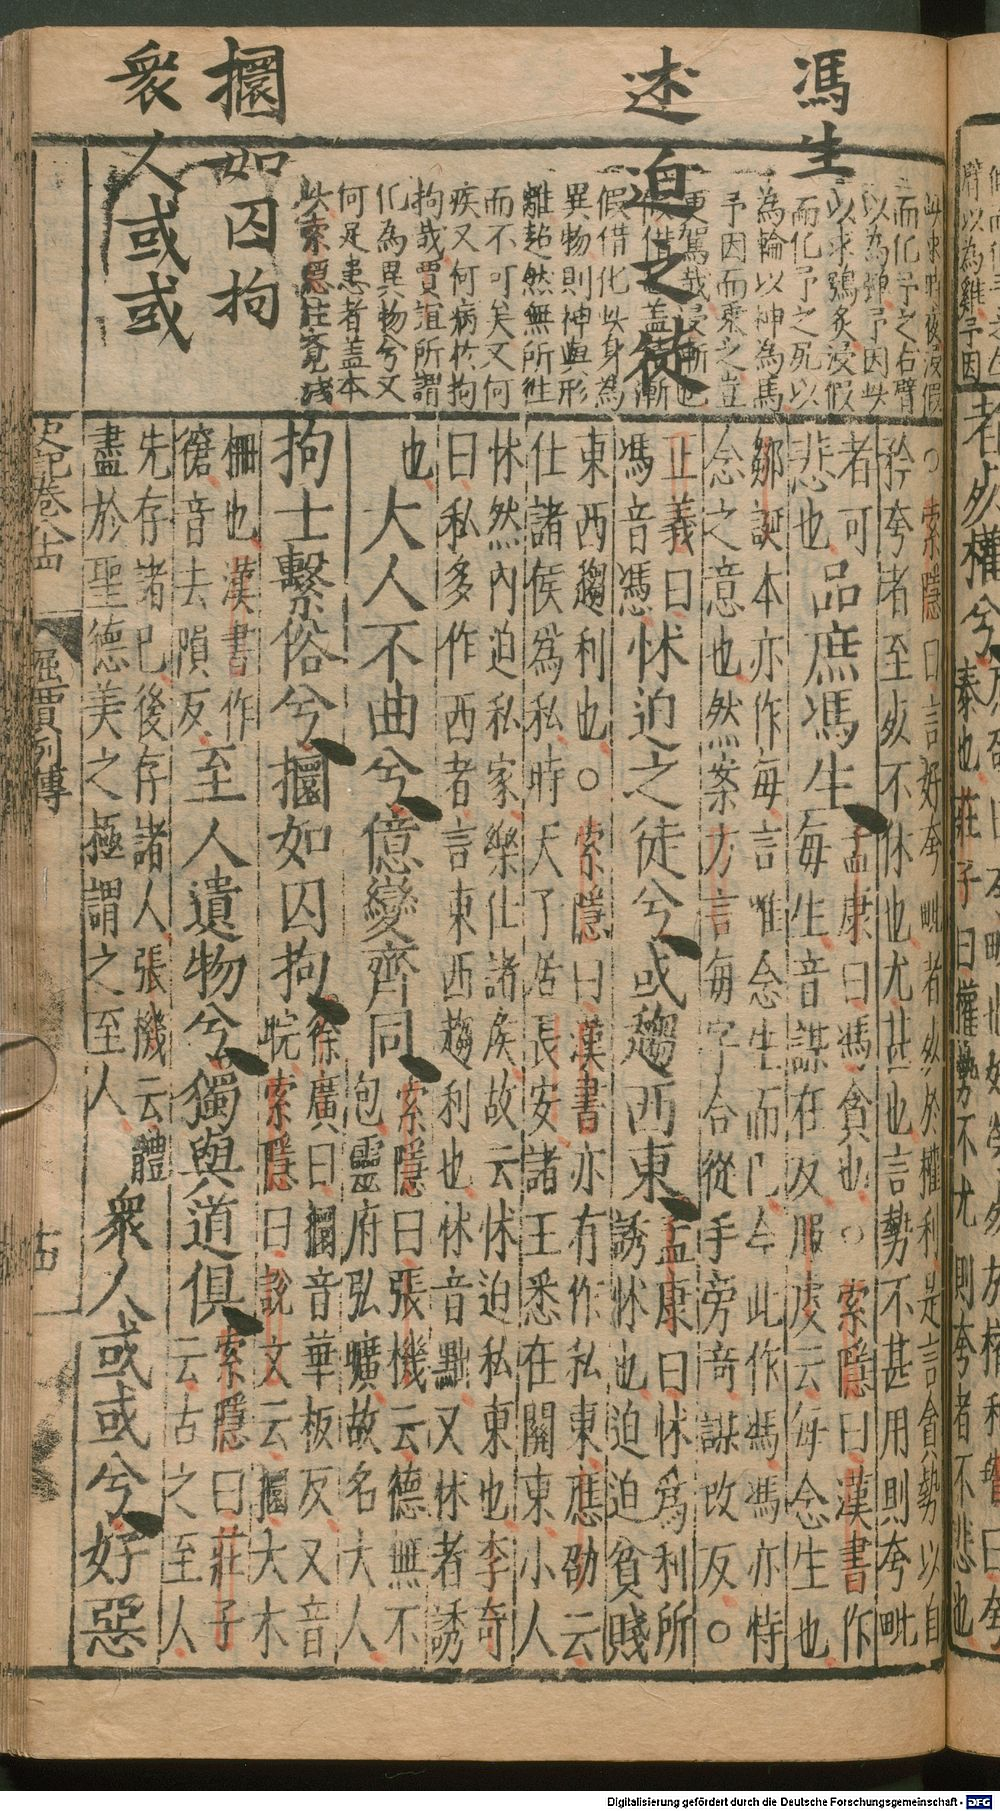 馮生
述迫之徒
攌如囚拘
衆人或或
此求時夜浸假
而化予之右臂
以為彈予因此
以求鴞炙浸假
而化予之尻以
為輪以神為馬
予因而乘之豈
更駕哉浸漸也
假借化此身為
異物則神與形
離超然無所往
而不可矣又何
疾又何病於拘
拘哉賈誼所謂
化為異物兮又
何足患者蓋本
此索隱注
○索隱曰言好夸毗者死於權利是言貪勢以自
矜夸者至死不休也尤甚也言勢不甚用則夸毗
者可
悲也
品庶馮生
孟康曰馮貪也○索隱曰漢書作
每生音謀在反服虔云每念生也
鄒誕本亦作每言唯念生而已今此作馮馮亦恃
念之意也然案方言每字合從手旁音謀改反○
正義曰
馮音憑
怵迫之徒兮或趨西東
孟康曰怵為利所
誘怵也迫迫貧賤
東西趨利也○索隱曰漢書亦有作私東應劭云
仕諸侯為私時天子居長安諸王悉在關東小人
怵然內迫私家樂仕諸侯故云怵迫私東也李奇
曰私多作西者言東西趨利也怵音黜又怵者誘
也
大人不曲兮億變齊同
索隱曰張機云德無不
包靈府弘曠故名大人
拘士繫俗兮攌如囚拘
徐廣曰攌音華板反又音
睆索隱曰說文云攌大木
柵也漢書作
㒆音去隕反
至人遺物兮獨與道俱
索隱曰莊子
云古之至人
先存諸己後存諸人張機云體
盡於聖德美之極謂之至人
衆人或或兮好惡
史記卷八十四
屈賈列傳
十四
Digitalisierung gefördert durch die Deutsche Forschungsgemeinschaft - DFG